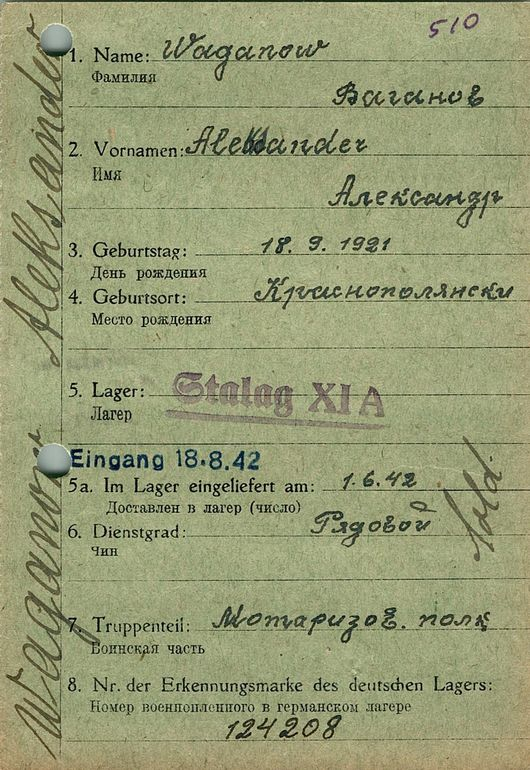 510
1. Name: Waganow
Фамилия
Ваганов
2. Vornamen: Aleksander
Имя
Александр
3. Geburtstag: 18. 9. 1921
День рождения
4. Geburtsort: Краснополянски
Место рождения
5. Lager: Stalag XI A
Лагер
Eingang 18.8.42
5a. Im Lager eingeliefert am: 1.6.42
Доставлен в лагер (число)
6. Dienstgrad: Рядовой
Чин
Sold.
7. Truppenteil: Мотаризов. полк
Воинская часть
8. Nr. der Erkennungsmarke des deutschen Lagers:
Номер военнопленного в германском лагере
124208
Waganow Aleksander